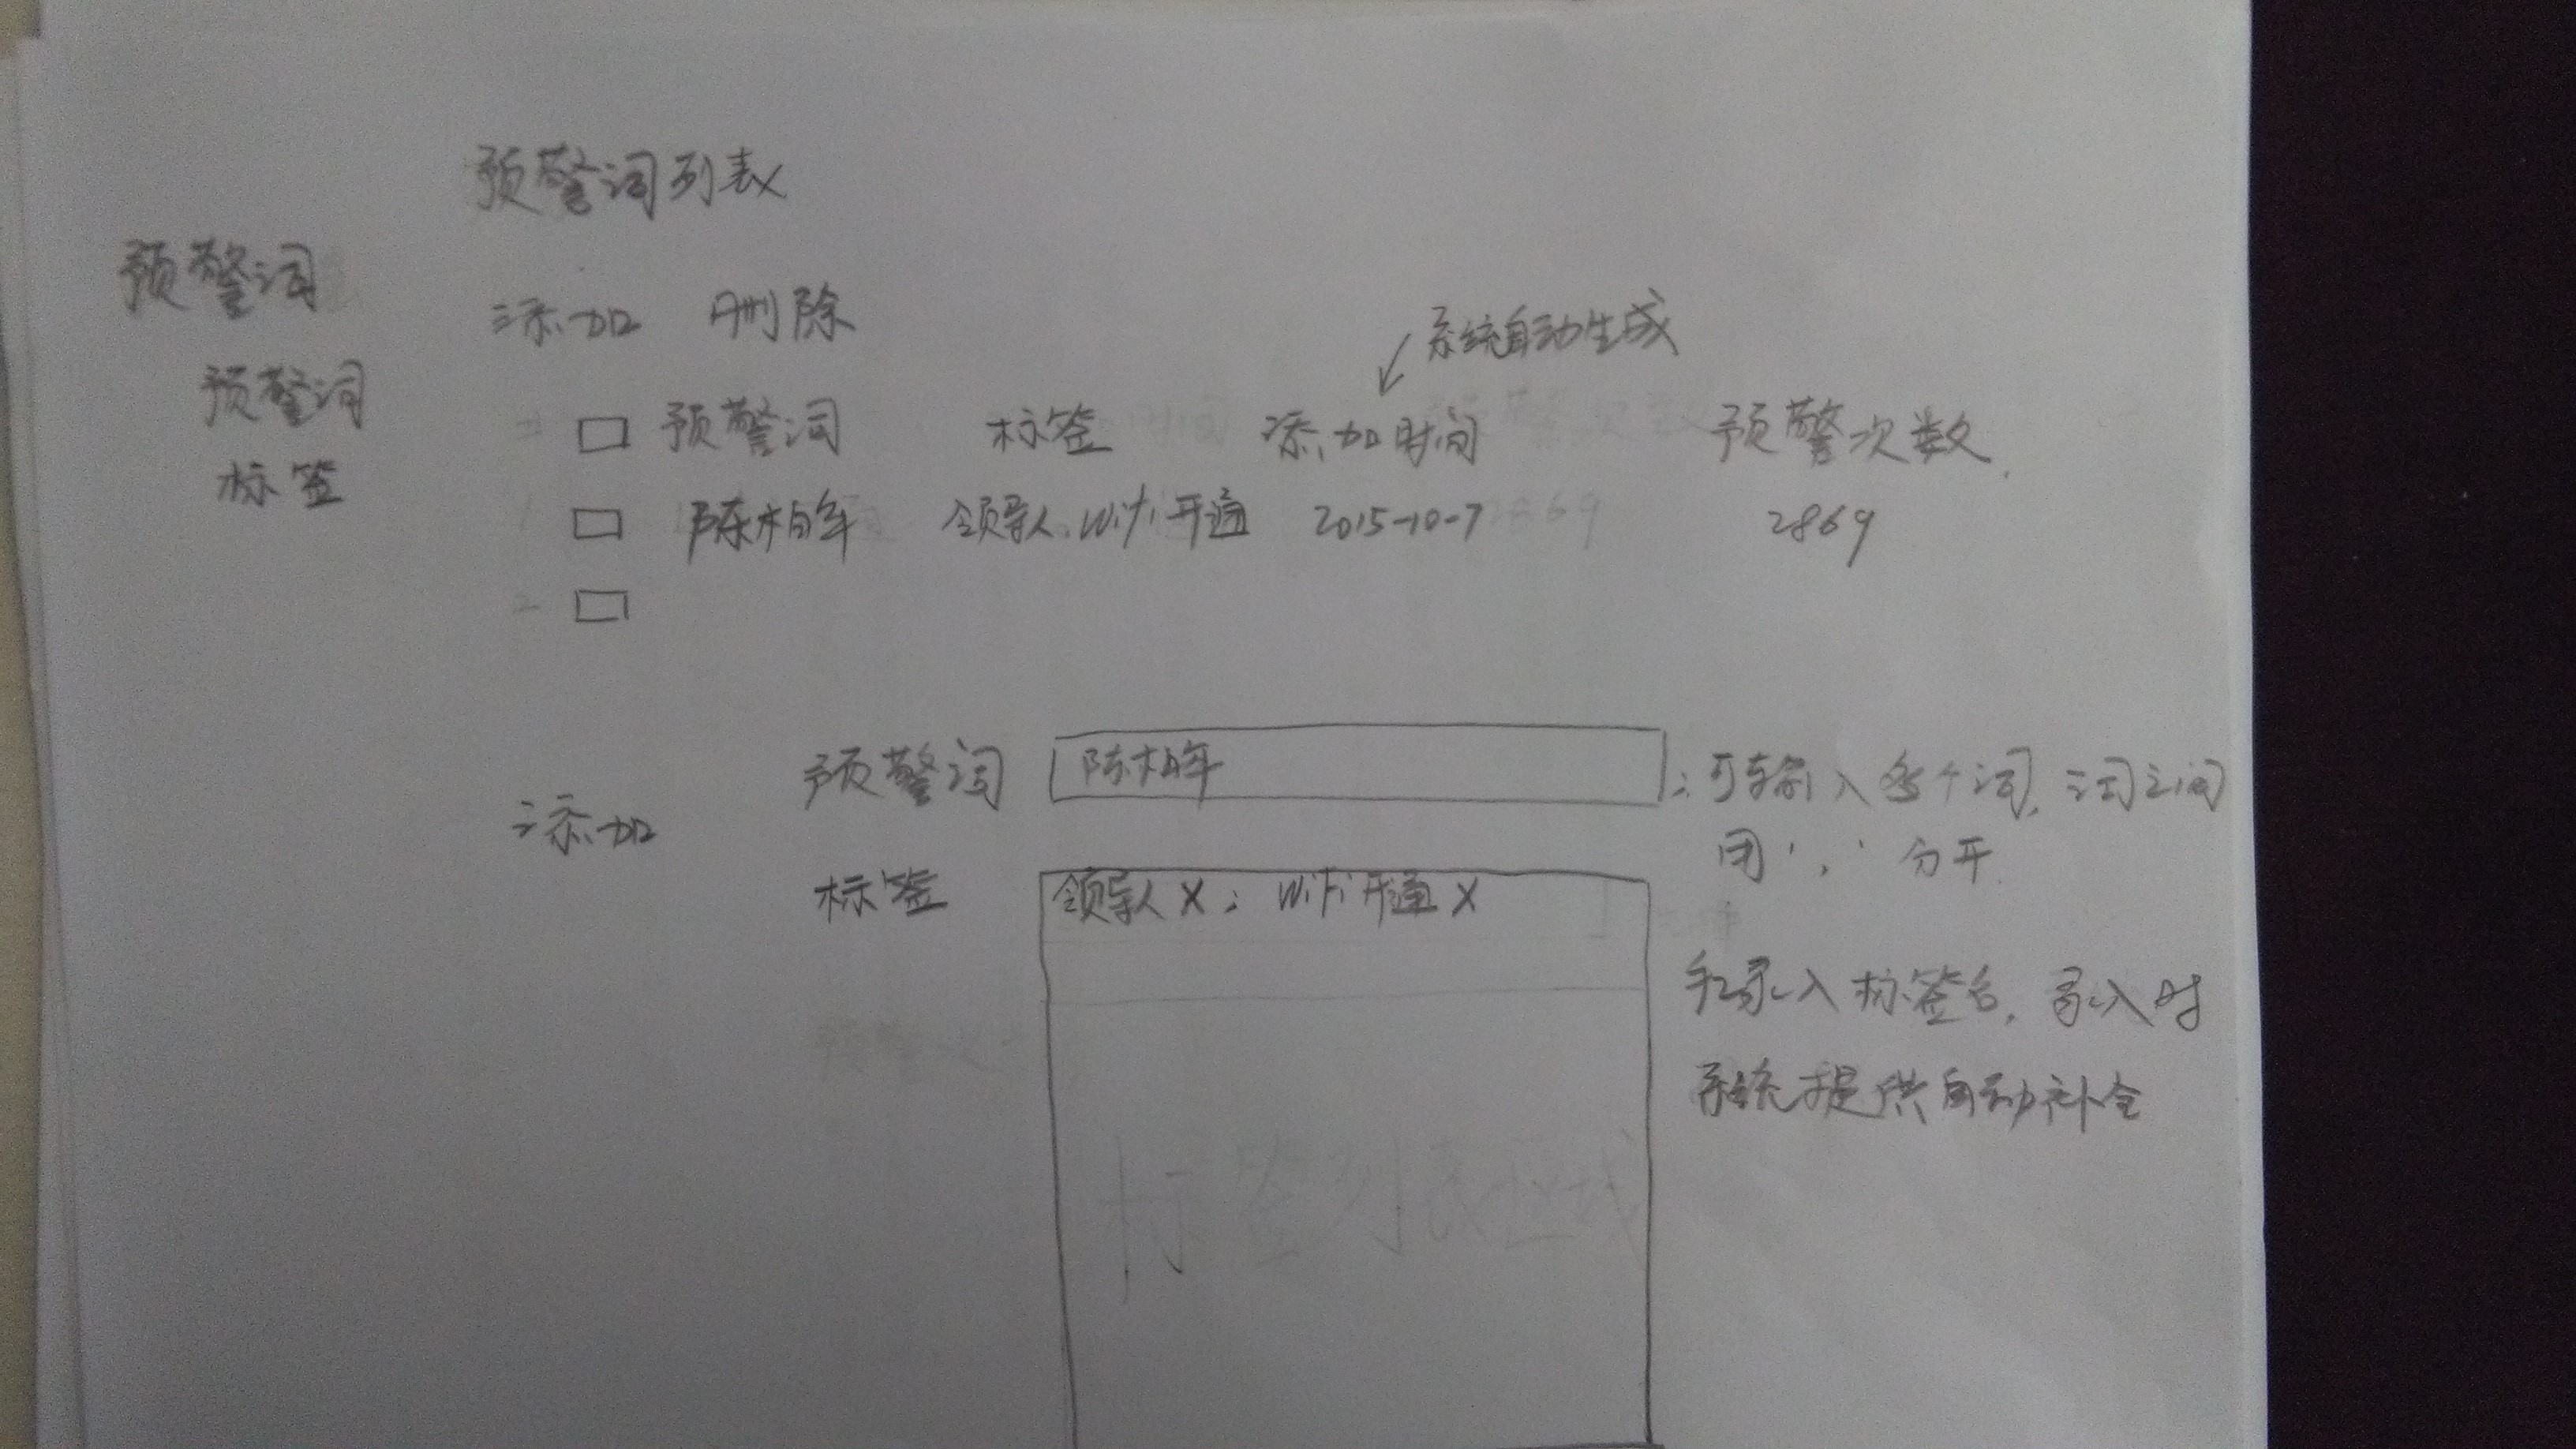 预警词列表
预警词
添加 删除
系统自动生成
预警词
标签
预警词 标签 添加时间 预警次数
陈柏年 领导人、WiFi开通 2015-10-7 2869
添加
预警词 陈柏年 ；可输入多个词，词之间
用‘，’分开
标签 领导人X； WiFi开通X
手录入标签名，录入时
系统提供自动补全
标签列表